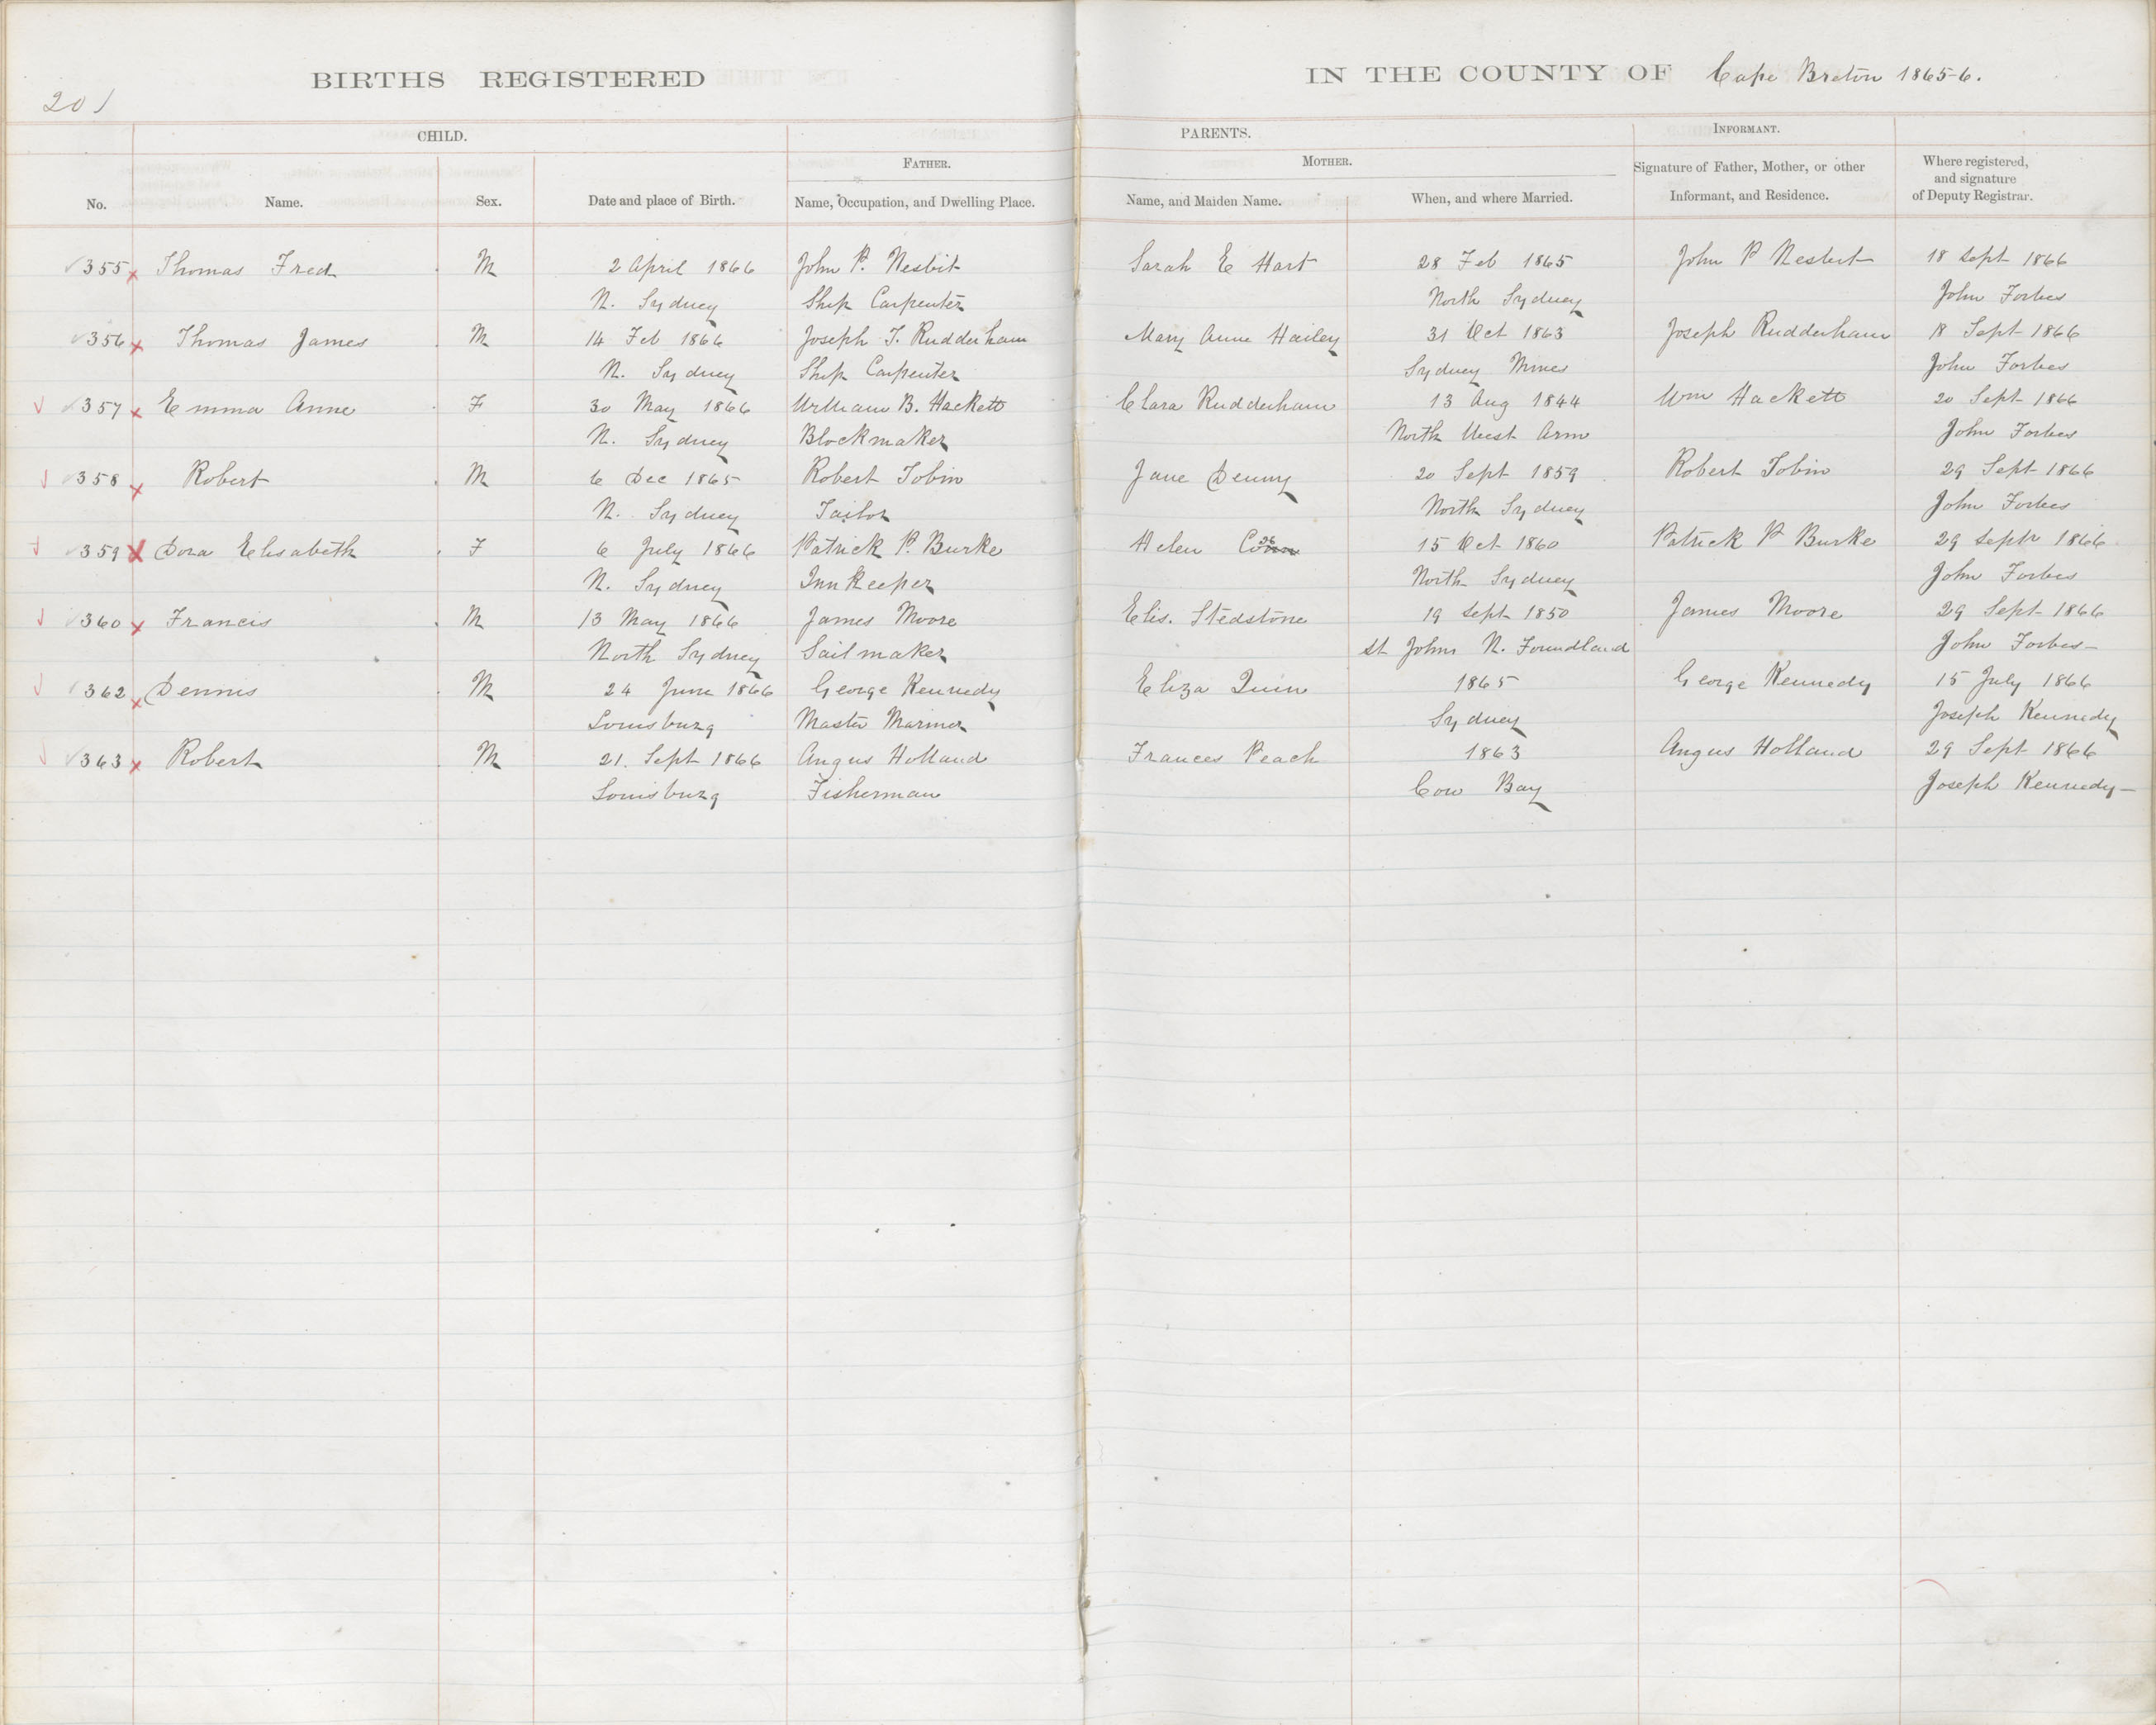 BIRTHS REGISTERED IN THE COUNTY OF Cape Breton 1865-6.
201
CHILD. PARENTS. INFORMANT.
FATHER. MOTHER. Signature of Father, Mother, or other Informant, and Residence. Where registered, and signature of Deputy Registrar.
No. Name. Sex. Date and place of Birth. Name, Occupation, and Dwelling Place. Name, and Maiden Name. When, and where Married.
355 Thomas Fred M 2 April 1866 John P. Nesbit Sarah E Hart 28 Feb 1865 John P Nesbit 18 Sept 1866
N. Sydney Ship Carpenter North Sydney John Forbes
356 Thomas James M 14 Feb 1866 Joseph T. Rudderham Mary Anne Hailey 31 Oct 1863 Joseph Rudderham 18 Sept 1866
N. Sydney Ship Carpenter Sydney Mines John Forbes
357 Emma Anne F 30 May 1866 William B. Hackett Clara Rudderham 13 Aug 1844 Wm Hackett 20 Sept 1866
N. Sydney Blockmaker North West Arm John Forbes
358 Robert M 6 Dec 1865 Robert Tobin Jane Denny 20 Sept 1859 Robert Tobin 29 Sept 1866
N. Sydney Tailor North Sydney John Forbes
359 Dora Elisabeth F 6 July 1866 Patrick P. Burke Helen 15 Oct 1860 Patrick P Burke 29 Septr 1866
N. Sydney Innkeeper North Sydney John Forbes
360 Francis M 13 May 1866 James Moore Elis. Stedstone 19 Sept 1850 James Moore 29 Sept 1866
North Sydney Sailmaker St Johns N. Foundland John Forbes
362 Dennis M 24 June 1866 George Kennedy Eliza Quin 1865 George Kennedy 15 July 1866
Louisburg Master Mariner Sydney Joseph Kennedy
363 Robert M 21. Sept 1866 Angus Holland Frances Peach 1863 Angus Holland 29 Sept 1866
Louisburg Fisherman Cow Bay Joseph Kennedy